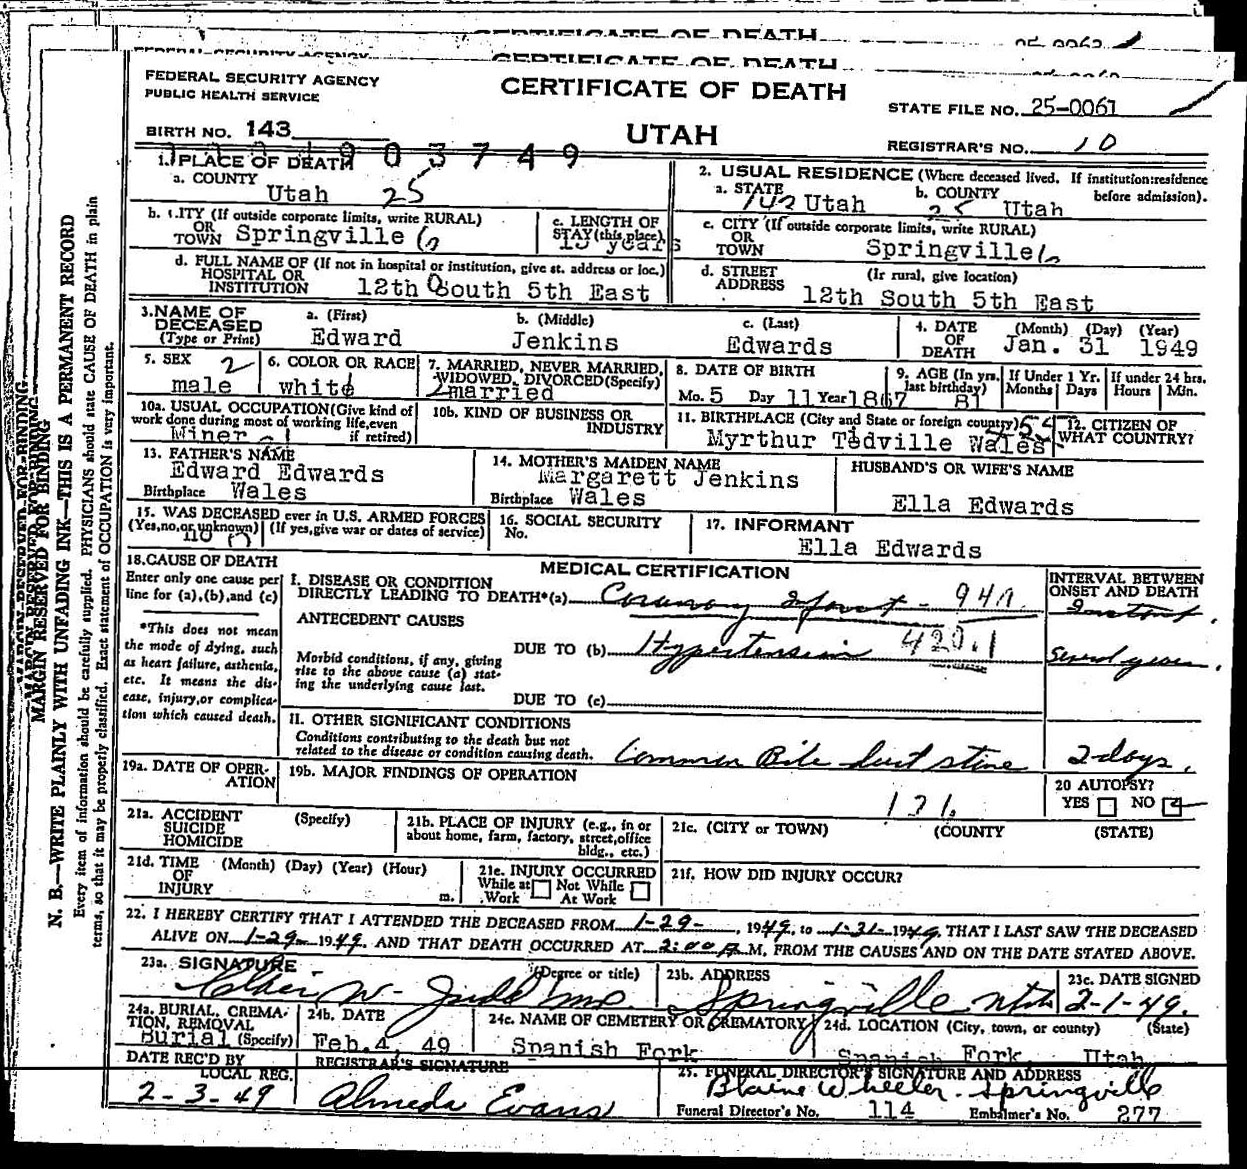 CERTIFICATE OF DEATH
CERTIFICATE OF DEATH
FEDERAL SECURITY AGENCY
PUBLIC HEALTH SERVICE
CERTIFICATE OF DEATH
STATE FILE NO. 25-0061
BIRTH NO. 143
UTAH
REGISTRAR'S NO. 10
1. PLACE OF DEATH
a. COUNTY
Utah 25
2. USUAL RESIDENCE (Where deceased lived. If institution:residence before admission).
a. STATE
Utah
b. COUNTY
25 Utah
b. CITY (If outside corporate limits, write RURAL)
OR
TOWN Springville
c. LENGTH OF
STAY (this place)
15 years
c. CITY (If outside corporate limits, write RURAL)
OR
TOWN
Springville
d. FULL NAME OF (If not in hospital or institution, give st. address or loc.)
HOSPITAL OR
INSTITUTION 12th South 5th East
d. STREET
ADDRESS
(If rural, give location)
12th South 5th East
3. NAME OF
DECEASED
(Type or Print)
a. (First)
Edward
b. (Middle)
Jenkins
c. (Last)
Edwards
4. DATE
OF
DEATH
(Month) (Day) (Year)
Jan. 31 1949
5. SEX 2
male
6. COLOR OR RACE
white
7. MARRIED, NEVER MARRIED,
WIDOWED, DIVORCED (Specify)
married
8. DATE OF BIRTH
Mo. 5 Day 11 Year 1867
9. AGE (In yrs.
last birthday)
81
If Under 1 Yr.
Months Days
If under 24 hrs.
Hours Min.
10a. USUAL OCCUPATION (Give kind of
work done during most of working life, even
if retired)
Miner
10b. KIND OF BUSINESS OR
INDUSTRY
11. BIRTHPLACE (City and State or foreign country)
Myrthur Tedville Wales
12. CITIZEN OF
WHAT COUNTRY?
13. FATHER'S NAME
Edward Edwards
Birthplace Wales
14. MOTHER'S MAIDEN NAME
Margarett Jenkins
Birthplace Wales
HUSBAND'S OR WIFE'S NAME
Ella Edwards
15. WAS DECEASED ever in U.S. ARMED FORCES
(Yes,no,or unknown) (If yes, give war or dates of service)
no
16. SOCIAL SECURITY
No.
17. INFORMANT
Ella Edwards
18. CAUSE OF DEATH
Enter only one cause per
line for (a),(b),and (c)
*This does not mean
the mode of dying, such
as heart failure, asthenia,
etc. It means the dis-
ease, injury,or complica-
tion which caused death.
MEDICAL CERTIFICATION
I. DISEASE OR CONDITION
DIRECTLY LEADING TO DEATH*(a) Coronary Infarct - 94a
INTERVAL BETWEEN
ONSET AND DEATH
Instant.
ANTECEDENT CAUSES
420.1
DUE TO (b) Hypertension
Several years.
Morbid conditions, if any, giving
rise to the above cause (a) stat-
ing the underlying cause last.
DUE TO (c)
II. OTHER SIGNIFICANT CONDITIONS
Conditions contributing to the death but not
related to the disease or condition causing death.
Common Bile duct stone
2 days.
19a. DATE OF OPER-
ATION
19b. MAJOR FINDINGS OF OPERATION
20 AUTOPSY?
YES NO
21a. ACCIDENT
SUICIDE
HOMICIDE
(Specify)
21b. PLACE OF INJURY (e.g., in or
about home, farm, factory, street,office
bldg., etc.)
21c. (CITY or TOWN) (COUNTY) (STATE)
21d. TIME
OF
INJURY
(Month) (Day) (Year) (Hour)
m.
21e. INJURY OCCURRED
While at Work Not While At Work
21f. HOW DID INJURY OCCUR?
22. I HEREBY CERTIFY THAT I ATTENDED THE DECEASED FROM 1-29-, 1949, to 1-31-1949, THAT I LAST SAW THE DECEASED
ALIVE ON 1-29-1949. AND THAT DEATH OCCURRED AT 2:00 A M, FROM THE CAUSES AND ON THE DATE STATED ABOVE.
23a. SIGNATURE (Degree or title)
W. Judd M.D.
23b. ADDRESS
Springville Utah
23c. DATE SIGNED
2-1-49.
24a. BURIAL, CREMA-
TION, REMOVAL
Burial (Specify)
24b. DATE
Feb. 4, 49
24c. NAME OF CEMETERY OR CREMATORY
Spanish Fork
24d. LOCATION (City, town, or county) (State)
Spanish Fork Utah
DATE REC'D BY
LOCAL REG.
2-3-49
REGISTRAR'S SIGNATURE
Almeda Evans
25. FUNERAL DIRECTOR'S SIGNATURE AND ADDRESS
Blaine Wheeler. Springville
Funeral Director's No. 114 Embalmer's No. 277
MARGIN RESERVED FOR BINDING
N. B.—WRITE PLAINLY WITH UNFADING INK—THIS IS A PERMANENT RECORD
Every item of information should be carefully supplied. PHYSICIANS should state CAUSE OF DEATH in plain
terms, so that it may be properly classified. Exact statement of OCCUPATION is very important.